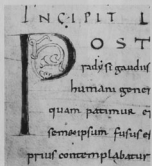 INCIPIT L
POST
radysi gaudiis
humani gener
quam patimur ei
semeipsum fusus ei
prius contemplabatur